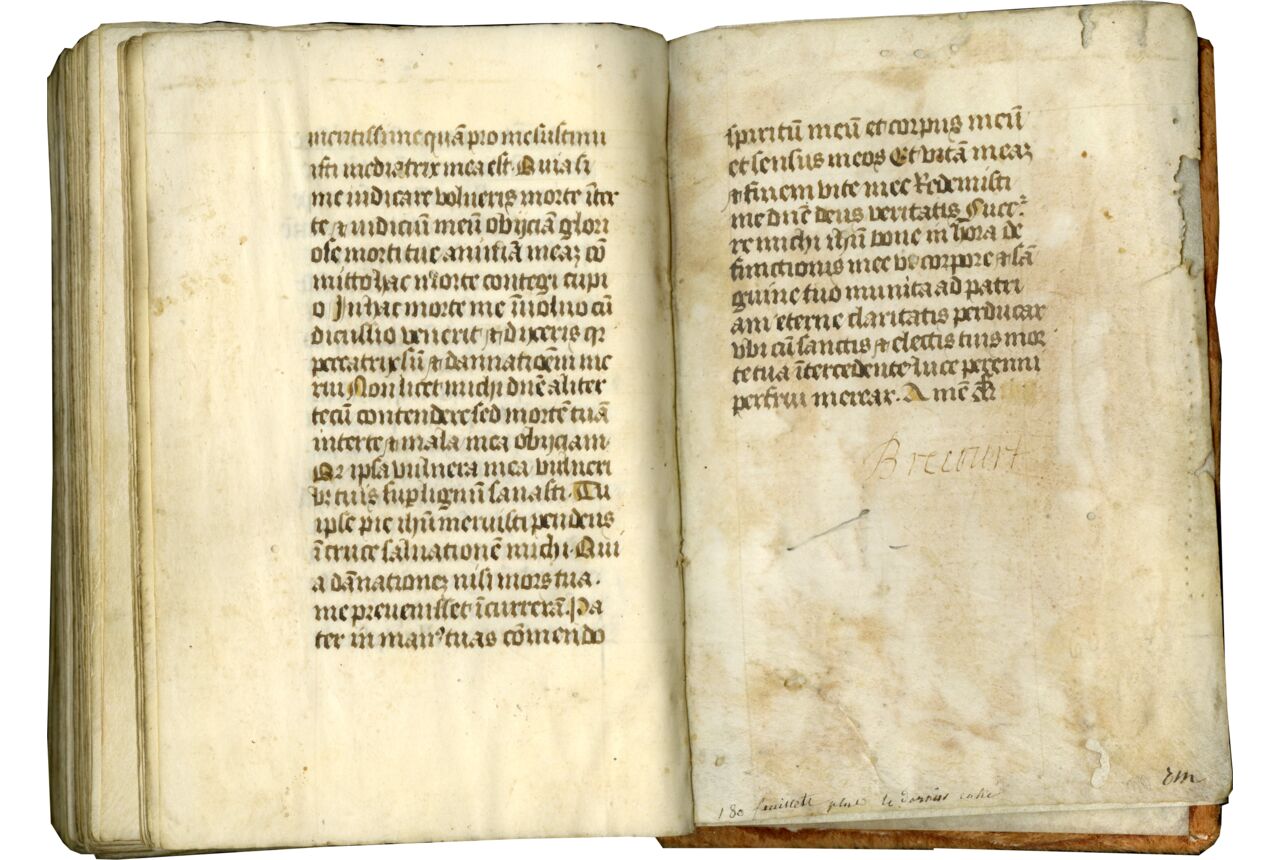 mentissime quā pro me sustinu
isti mediatrix mea est. Quia si
me iudicare volueris morte īter
te ⁊ iudiciū meū obijciā glori
ose morti tue animā meaꝫ cō
mitto hac morte contegi cupi
o In hac morte me īuoluo cū
discussio venerit ⁊ dixeris qꝛ
peccatrix sū ⁊ damnationem me
rui Non licet michi dn̄e aliter
tecū contendere sed mortē tuā
inter te ⁊ mala mea obijciam
Qꝛ ipsa vulnera mea vulneri
bꝰ tuis suꝑ lignū sanasti. Tu
ipse pie ihū meruisti pendens
ī cruce saluationē michi. Qui
a dānationeꝫ nisi mors tua.
me preuenisset īcurrerā. Pa
ter in manꝰ tuas cōmendo
spiritū meū et corpus meū
et sensus meos Et vitā meaꝫ
⁊ finem vite mee Redemisti
me dn̄e deus veritatis Succr̄
re michi ihū bone in hora de
functionis mee vt corpore ⁊ sā
guine tuo munita ad patri
am eterne claritatis perducar
vbi cū sanctis ⁊ electis tuis mor
te tua ītercedente luce perenni
perfrui merear. Amē
Brecourt
180 feuillets plus le dernier